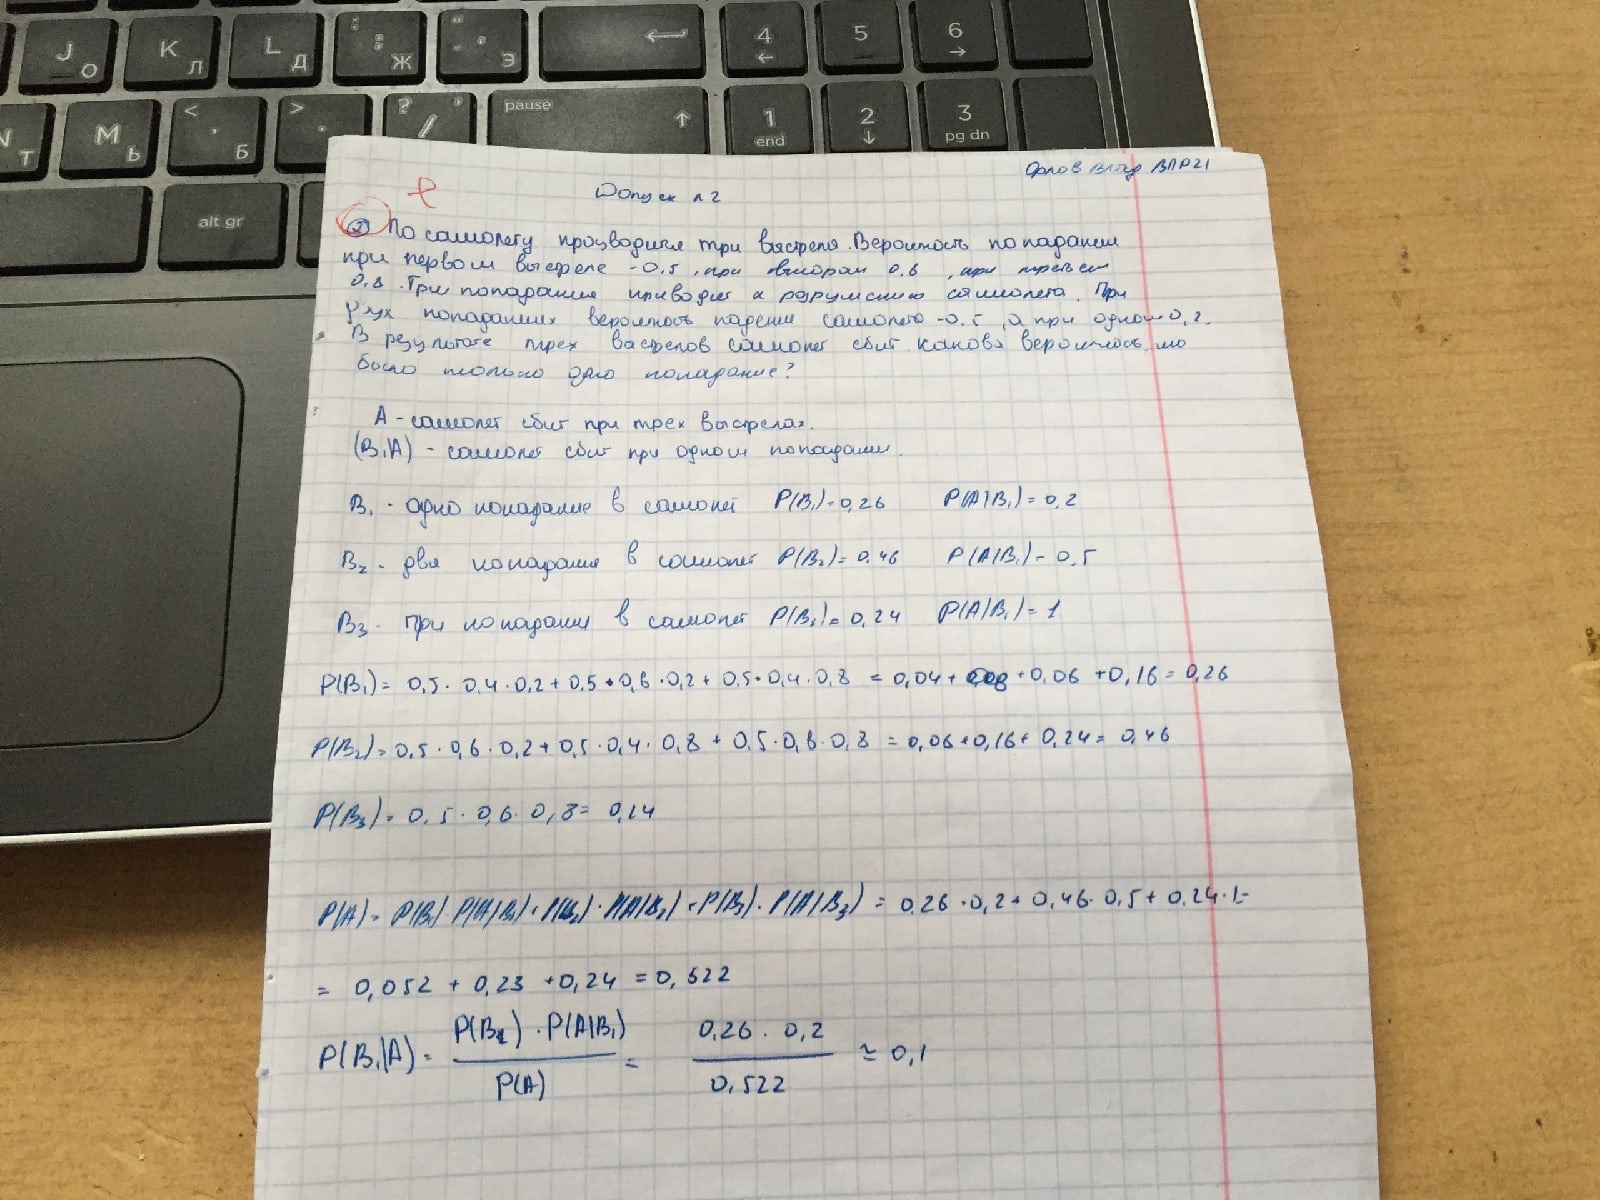 J О
K Л
L Д
: ; Ж
" ' Э
4 ←
5
6 →
N Т
M Ь
< , Б
> .
? /
pause
1 end
2 ↓
3 pg dn
alt gr
Орлов Влад ВПР21
Допуск №2
② По самолету производится три выстрела. Вероятность попадания
при первом выстреле - 0.5, при втором 0.6, при третьем
0.8. Три попадания приводят к разрушению самолета. При
двух попаданиях вероятность падения самолета - 0.5, а при одном 0,2.
В результате трех выстрелов самолет сбит. Какова вероятность, что
было только одно попадание?
A - самолет сбит при трех выстрелах.
(B₁|A) - самолет сбит при одном попадании.
B₁ - одно попадание в самолет P(B₁)=0,26 P(A|B₁)=0,2
B₂ - два попадания в самолет P(B₂)=0,46 P(A|B₁)=0,5
B₃ - три попадания в самолет P(B₃)=0,24 P(A|B₁)=1
P(B₁)= 0,5·0,4·0,2+0,5·0,6·0,2+0,5·0,4·0,8 = 0,04+ +0,06+0,16=0,26
P(B₂)=0,5·0,6·0,2+0,5·0,4·0,8+0,5·0,6·0,8 =0,06+0,16+0,24= 0,46
P(B₃)= 0,5·0,6·0,8= 0,24
P(A)= P(B₁)·P(A|B₁)+P(B₂)·P(A|B₂)+P(B₃)·P(A|B₃) = 0,26·0,2+0,46·0,5+0,24·1=
= 0,052 + 0,23 + 0,24 = 0,522
P(B₁|A)= P(B₁)·P(A|B₁) / P(A) = 0,26·0,2 / 0,522 ≃ 0,1